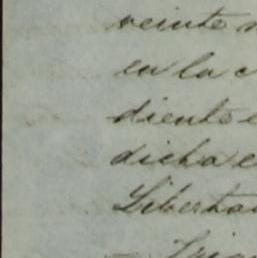 veinte
en la c
diente e
dicha e
Liberta